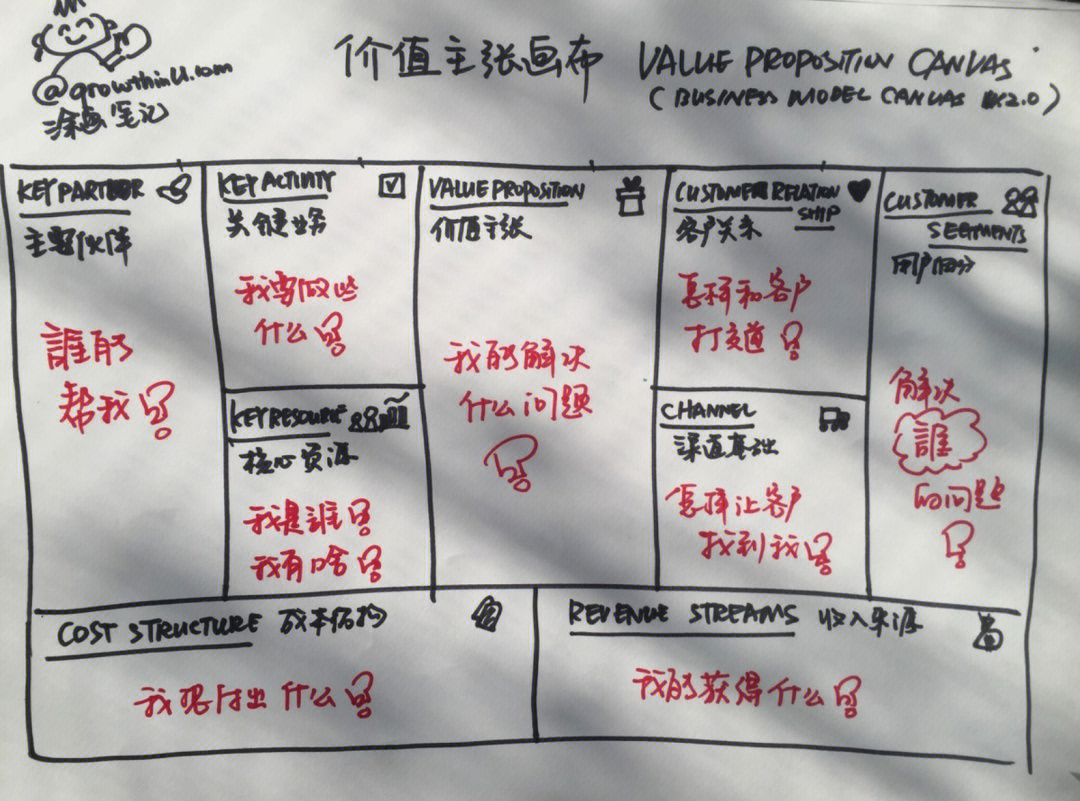 @growthinU.com
涂鸦笔记
价值主张画布 VALUE PROPOSITION CANVAS
(BUSINESS MODEL CANVAS 2.0)
KEY PARTNER
主要伙伴
誰能
帮我?
KEY ACTIVITY
关键业务
我要做些
什么?
KEY RESOURCE
核心资源
我是誰?
我有啥?
VALUE PROPOSITION
价值主张
我能解决
什么问题
?
CUSTOMER RELATION
SHIP
客户关系
怎样和客户
打交道?
CHANNEL
渠道基础
怎样让客户
找到我?
CUSTOMER
SEGMENTS
用户细分
解决
誰
的问题
?
COST STRUCTURE 成本结构
我要付出什么?
REVENUE STREAMS 收入来源
我能获得什么?